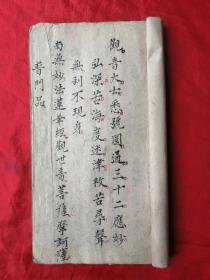 觀音大士悉號圓通三十二應妙
弘深苦海度迷津救苦尋聲
無刹不現身
南無妙法蓮華經觀世音菩薩摩訶薩
普門品